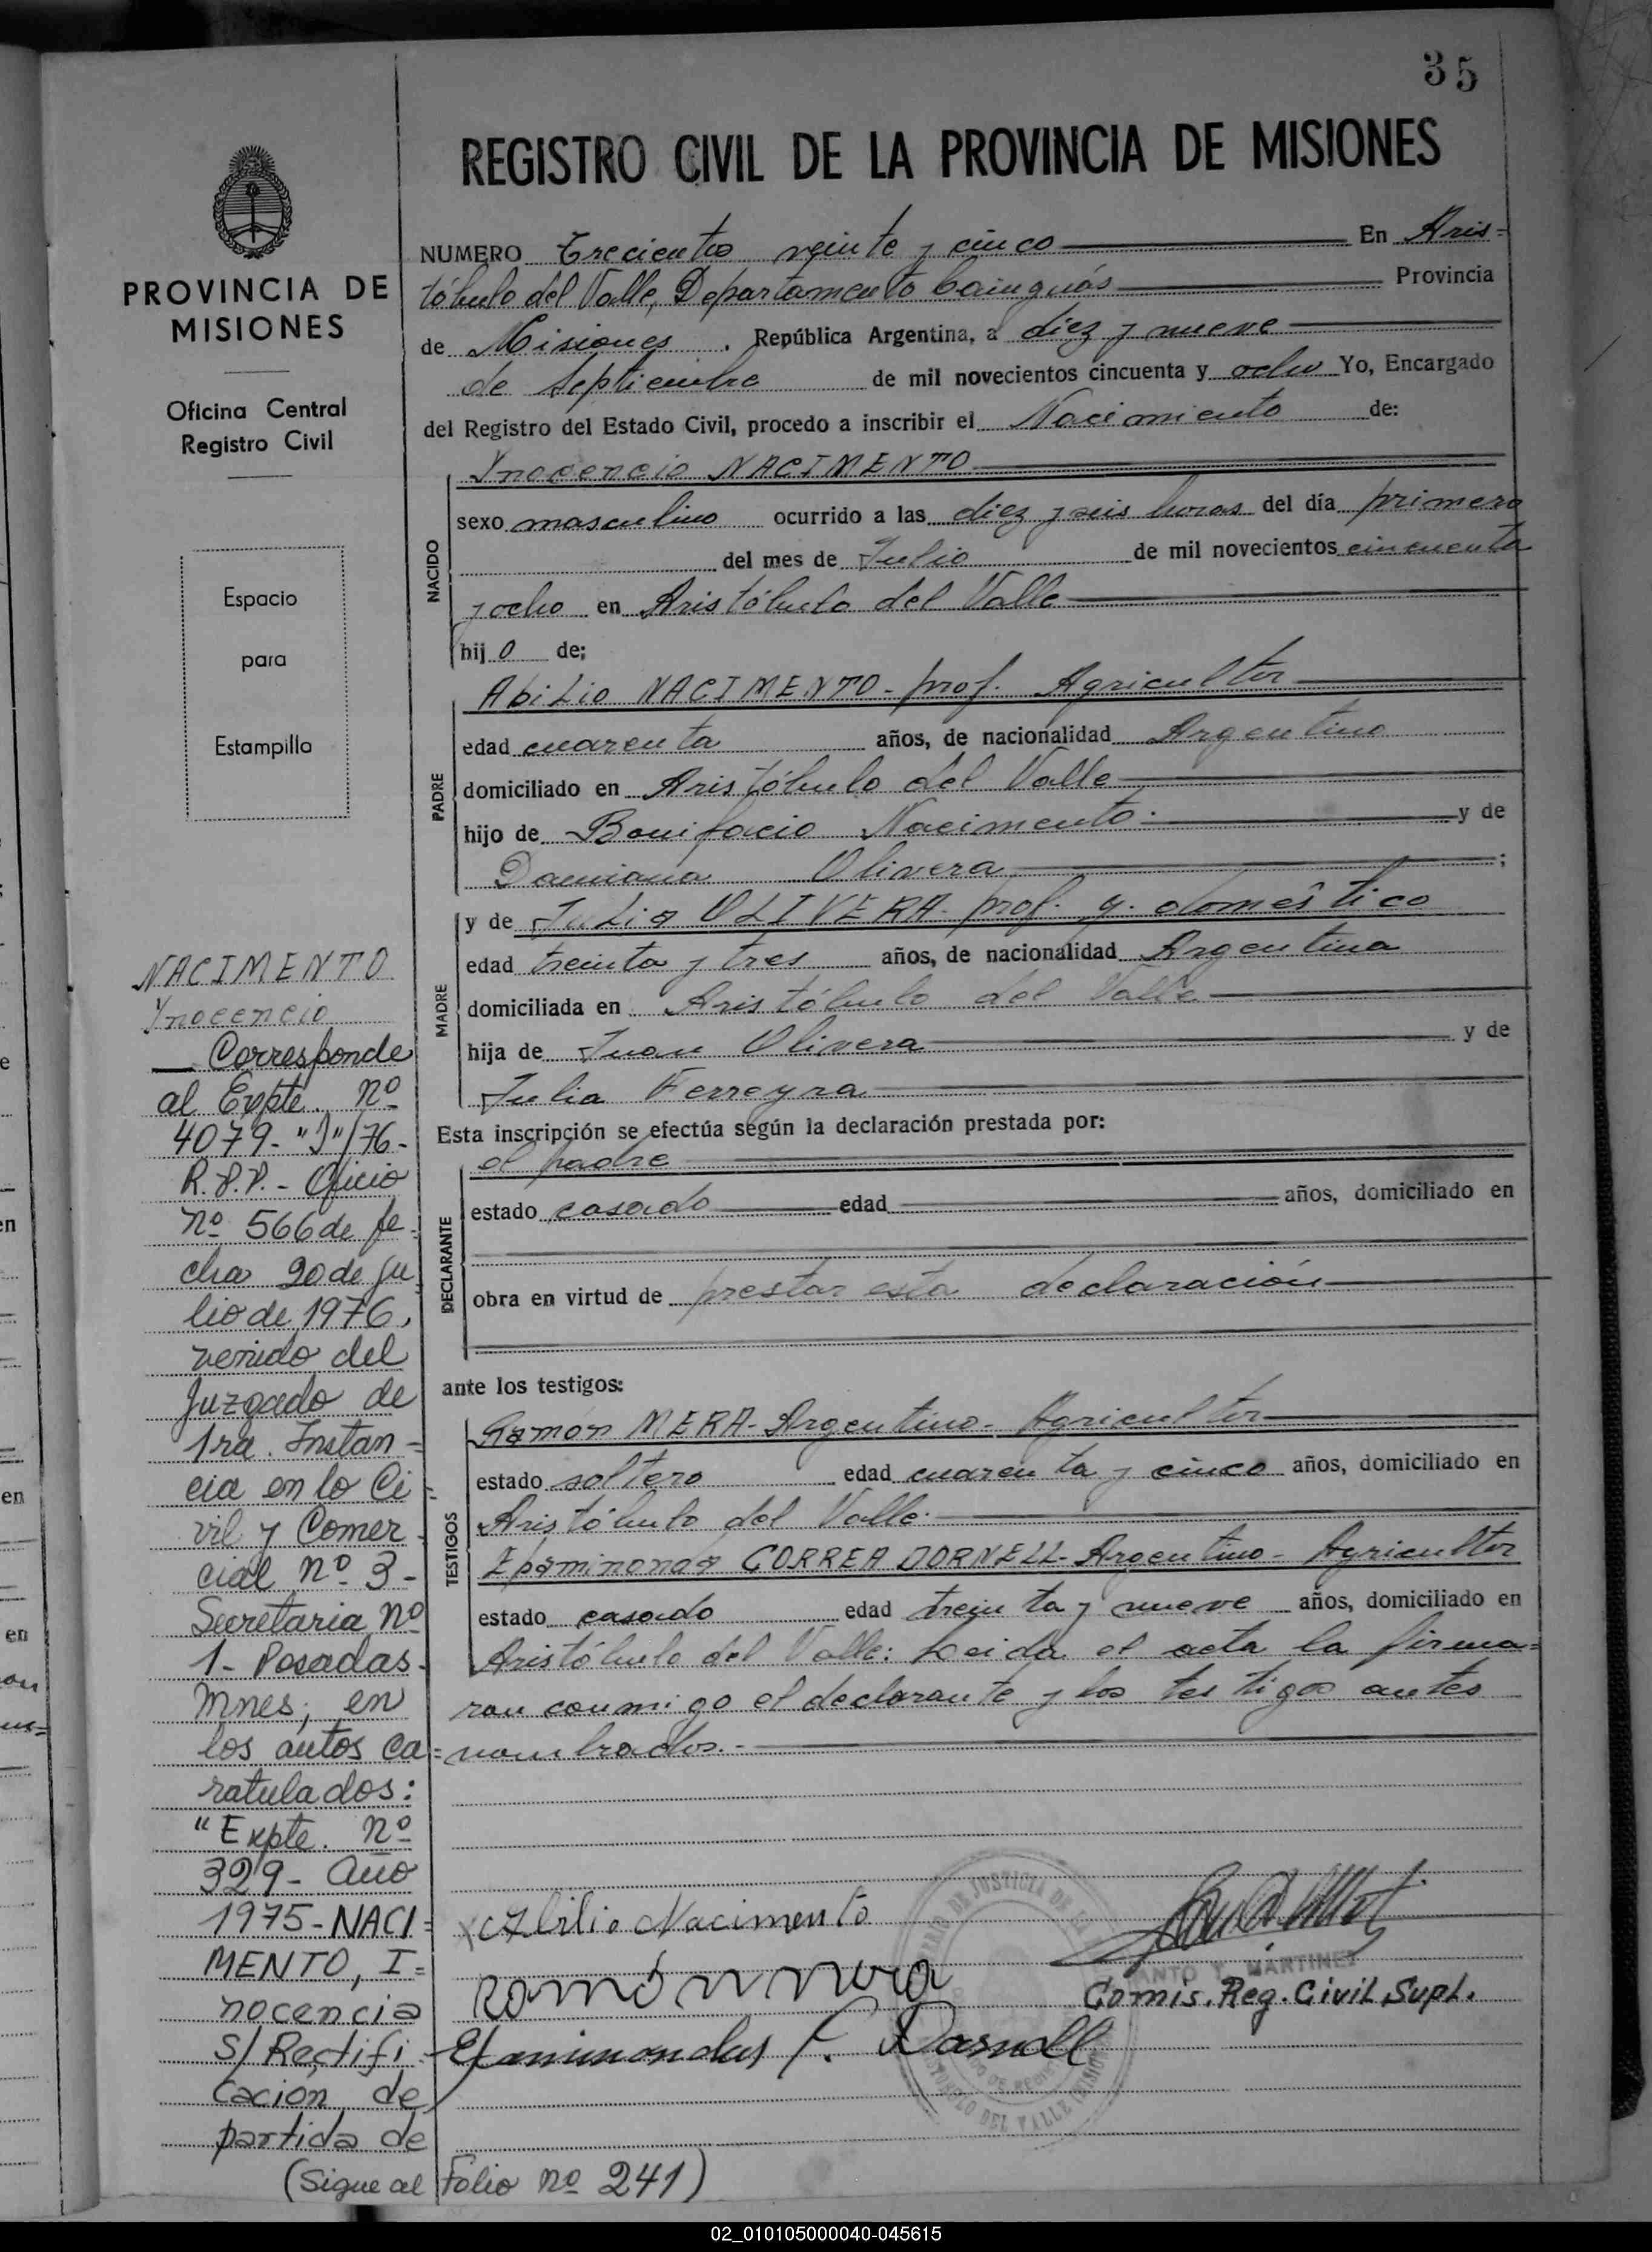 35
REGISTRO CIVIL DE LA PROVINCIA DE MISIONES
PROVINCIA DE
MISIONES
Oficina Central
Registro Civil
Espacio
para
Estampilla
NUMERO Trecientos veinte y cinco En Aris=
tóbulo del Valle, Departamento Cainguás Provincia
de Misiones. República Argentina, a diez y nueve
de Septiembre de mil novecientos cincuenta y ocho Yo, Encargado
del Registro del Estado Civil, procedo a inscribir el Nacimiento de:
NACIDO
Ynocencio NACIMENTO
sexo masculino ocurrido a las diez y seis horas del día primero
del mes de Julio de mil novecientos cincuenta
y ocho en Aristóbulo del Valle
hij o de;
PADRE
Abilio NACIMENTO - prof. Agricultor
edad cuarenta años, de nacionalidad Argentino
domiciliado en Aristóbulo del Valle
hijo de Bonifacio Nacimento. y de
Damiana Olivera ;
MADRE
y de Julia OLIVERA - prof. q. doméstico
edad treinta y tres años, de nacionalidad Argentina
domiciliada en Aristóbulo del Valle
hija de Juan Olivera y de
Julia Ferreyra
Esta inscripción se efectúa según la declaración prestada por:
DECLARANTE
el padre
estado casado edad años, domiciliado en
obra en virtud de prestar esta declaración
ante los testigos:
TESTIGOS
Ramón MERA - Argentino - Agricultor
estado soltero edad cuarenta y cinco años, domiciliado en
Aristóbulo del Valle.
Epaminonda CORREA DORNELL - Argentino - Agricultor
estado casado edad treinta y nueve años, domiciliado en
Aristóbulo del Valle: Leida el acta la firma=
ron conmigo el declarante y los testigos antes
nombrados.-
Abilio Nacimento
Ramón Mera
Epaminondas C. Dornell
MARTINEZ
Comis. Reg. Civil Supl.
NACIMENTO
Ynocencio
Corresponde
al Expte. nº
4079-"J"/76-
R.P.P. - Oficio
nº 566 de fe-
cha 20 de ju
lio de 1976,
venido del
Juzgado de
1ra. Instan=
cia en lo Ci=
vil y Comer-
cial nº 3-
Secretaria nº
1- Posadas.
Mnes; en
los autos ca=
ratulados:
"Expte. nº
329- Año
1975- NACI=
MENTO, I=
nocencia
S/ Rectifi-
cación de
partida de
(Sigue al Folio nº 241)
02_010105000040-045615